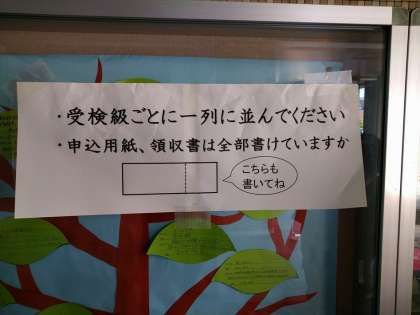 ・受検級ごとに一列に並んでください
・申込用紙、領収書は全部書けていますか
こちらも
書いてね